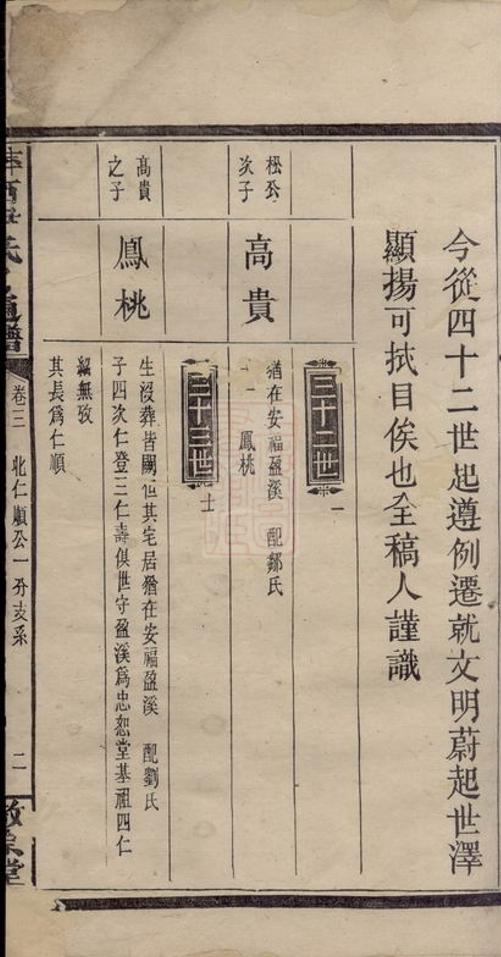 今從四十二世起遵例遷就文明蔚起世澤
顯揚可拭目俟也全稿人謹識
三十二世
松公
次子
高貴
猶在安福盈溪 配鄒氏
子一 鳳桃
三十三世
高貴
之子
鳳桃
生沒葬皆闕但其宅居猶在安福盈溪 配劉氏
子四次仁登三仁壽俱世守盈溪為忠恕堂基祖四仁
紹無攷
其長為仁順
氏通譜
卷三 北仁順公一分支系
二
敘倫堂